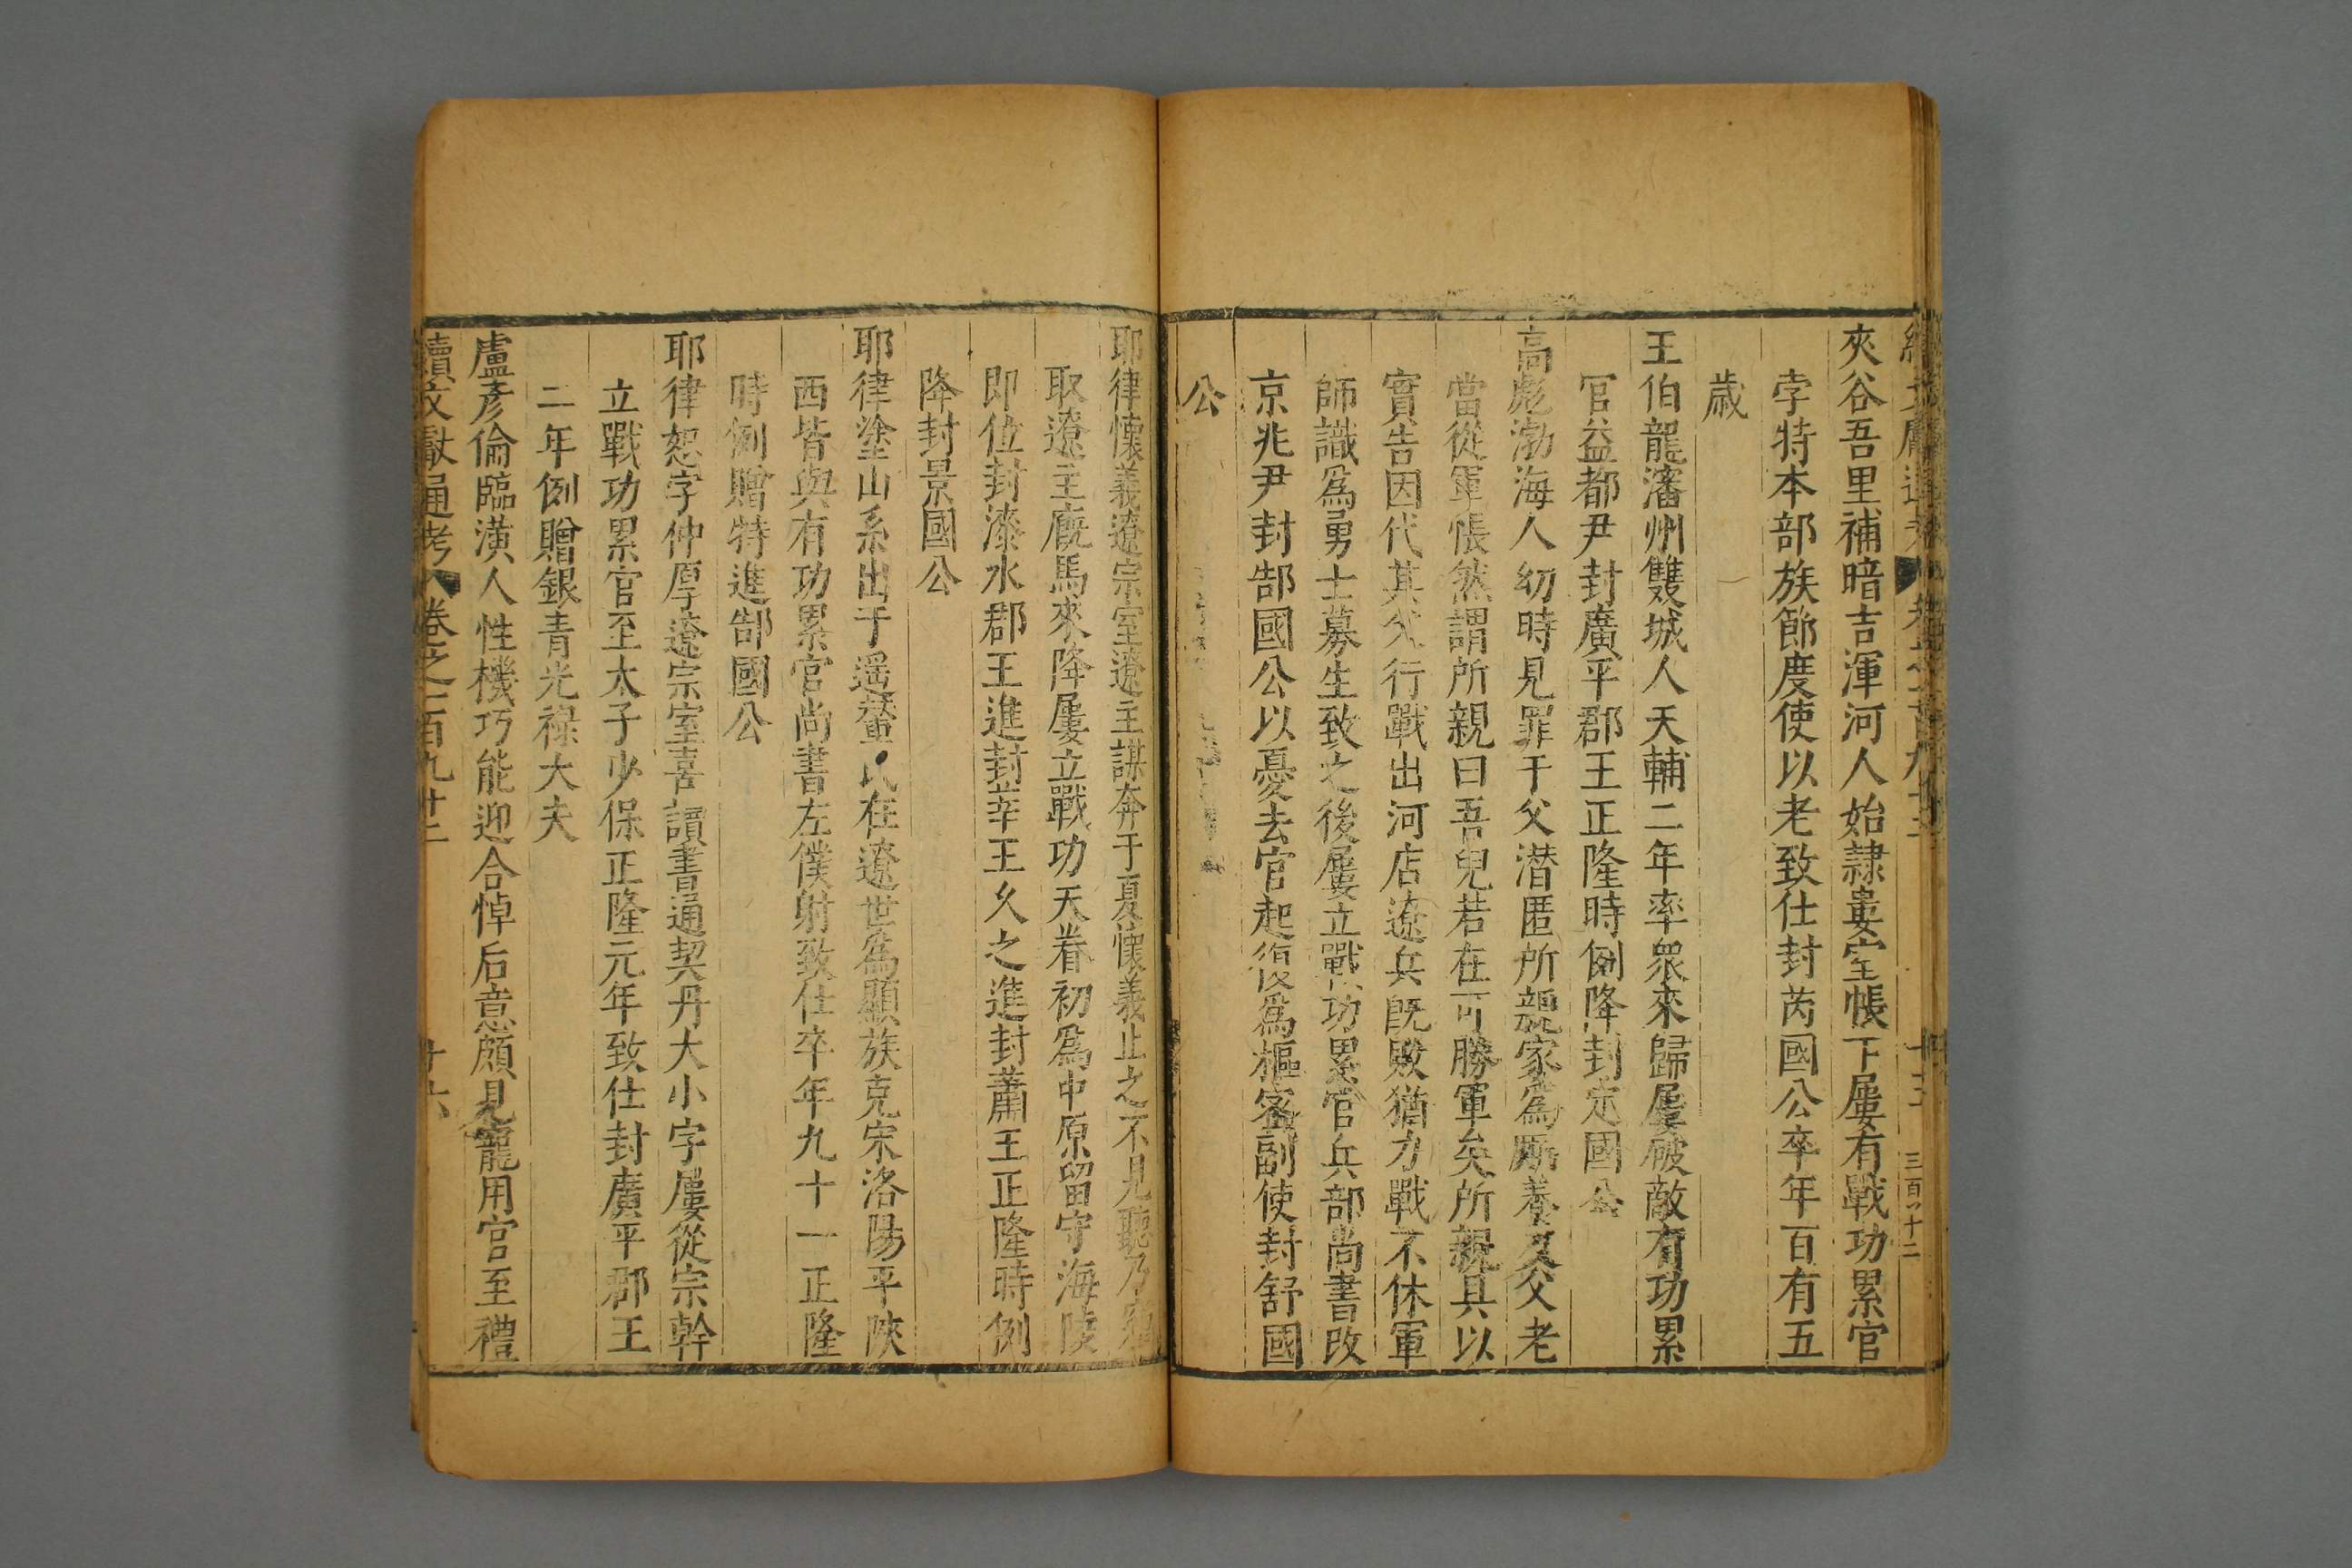 夾谷吾里補暗吉渾河人始隷婁室帳下屢有戰功累官
孛特本部族節度使以老致仕封芮國公卒年百有五
歲
王伯龍瀋州雙城人天輔二年率衆來歸屢破敵有功累
官益都尹封廣平郡王正隆時例降封定國公
高彪渤海人幼時見罪于父潜匿所親家爲所養及父老
當從軍悵然謂所親曰吾兒若在可勝軍矣所親具以
實告因代其父行戰出河店遼兵旣敗猶力戰不休軍
師識爲勇士募生致之後屢立戰功累官兵部尚書改
京兆尹封郜國公以憂去官起復爲樞密副使封舒國
公
耶律懷義遼宗室遼主謀奔于夏懷義止之不見聽乃竊
取遼主厩馬來降屢立戰功天眷初爲中原留守海陵
即位封漆水郡王進封莘王久之進封蕭王正隆時例
降封景國公
耶律塗山系出于遥輦氏在遼世爲顯族克宋洛陽平陜
西皆與有功累官尚書左僕射致仕卒年九十一正隆
時例贈特進郜國公
耶律恕字仲厚遼宗室喜讀書通契丹大小字屢從宗幹
立戰功累官至太子少保正隆元年致仕封廣平郡王
二年例贈銀青光禄大夫
盧彥倫臨潢人性機巧能迎合悼后意頗見寵用官至禮
續文獻通考 卷之一百九十三 十六